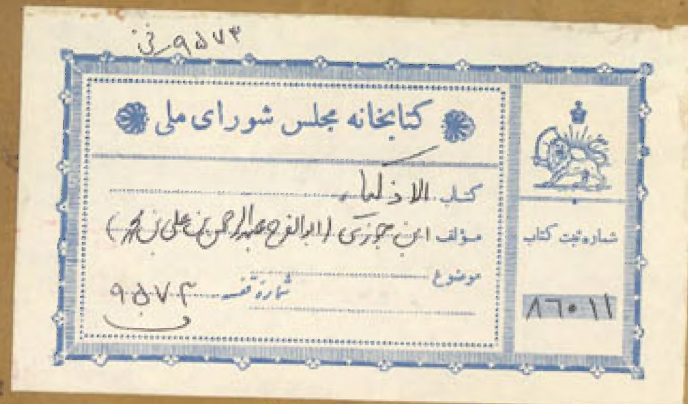 ۹۵۷۳ فی
کتابخانه مجلس شورای ملی
کتاب الاذکیاء
مؤلف ابن جوزی (ابوالفرج عبدالرحمن بن علی بن محمد)
موضوع
شماره قفسه ۹۵۷۳
ف
شماره ثبت کتاب
۸۶۰۱۱